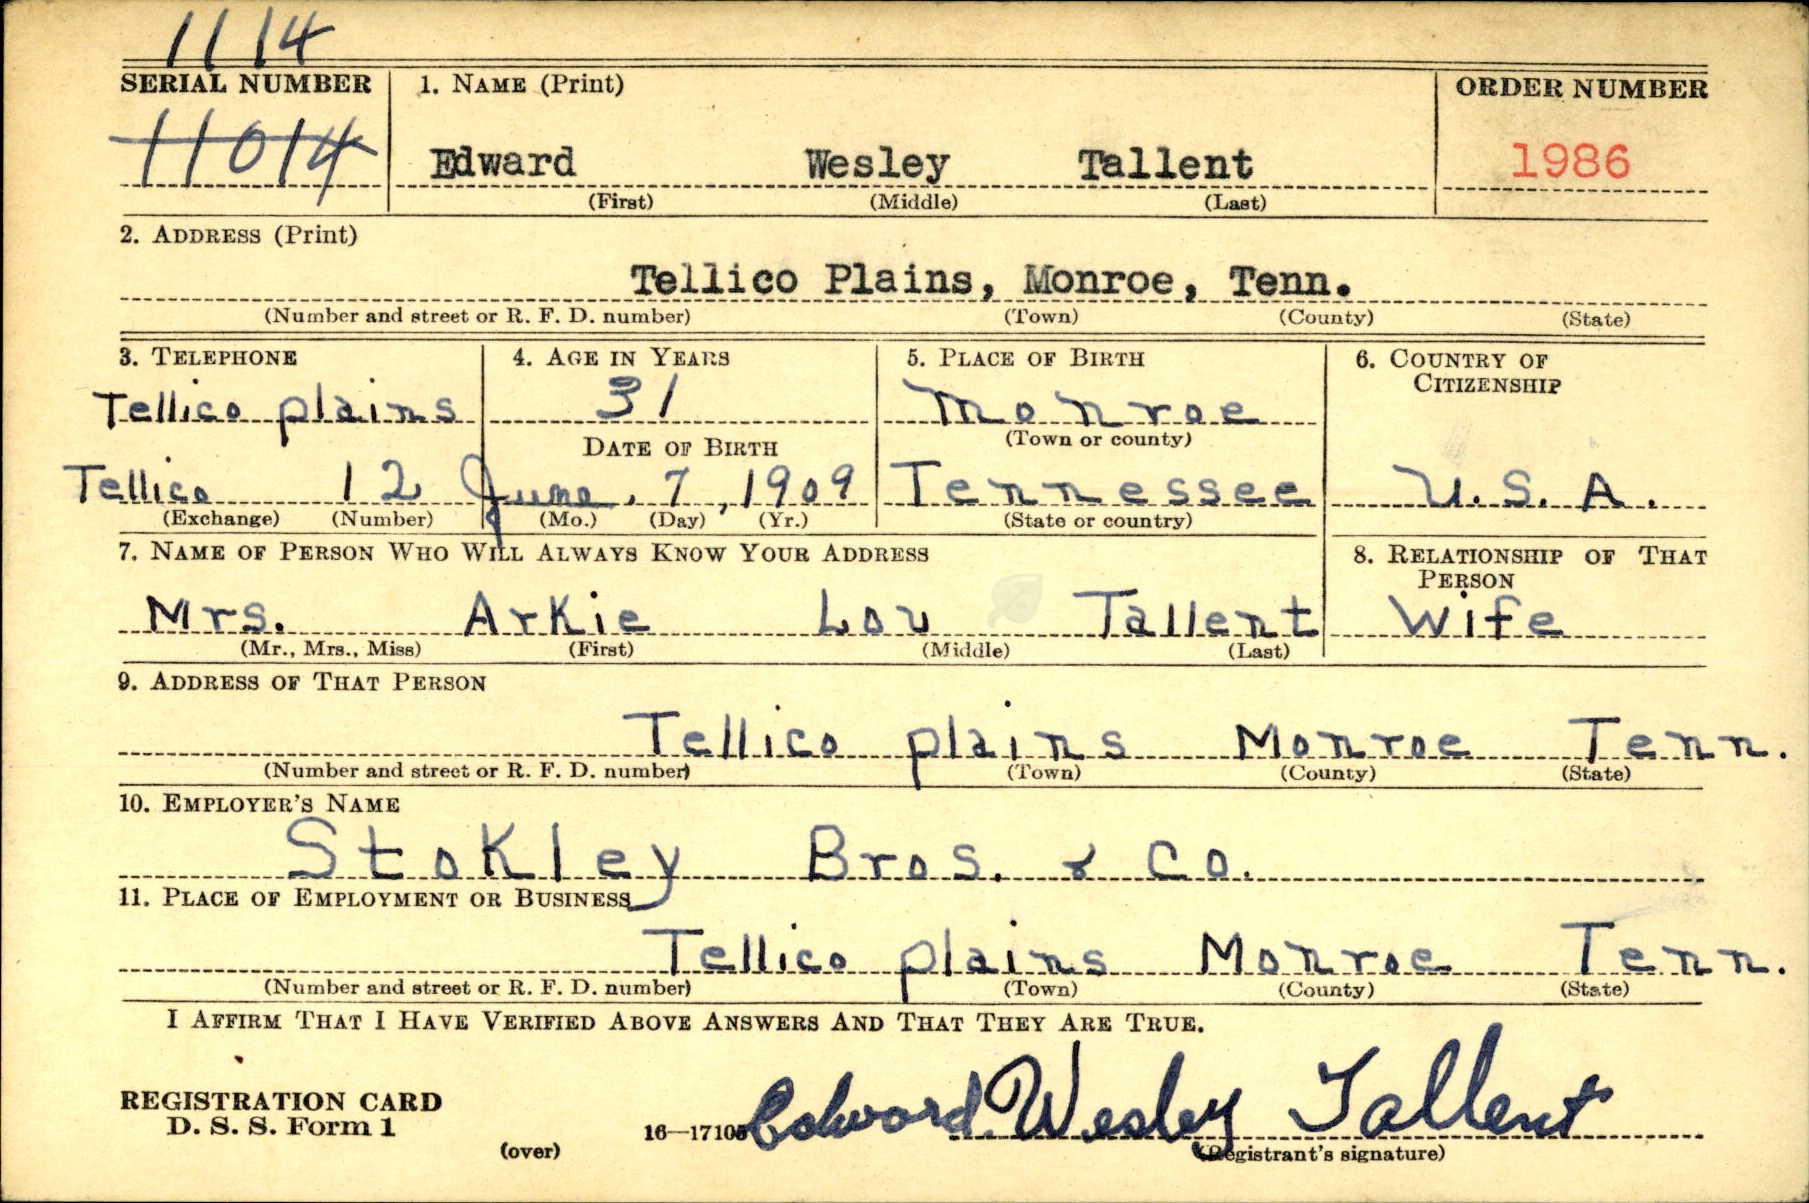 1114
SERIAL NUMBER 1. NAME (Print) ORDER NUMBER
11014 Edward Wesley Tallent 1986
(First) (Middle) (Last)
2. ADDRESS (Print)
Tellico Plains, Monroe, Tenn.
(Number and street or R. F. D. number) (Town) (County) (State)
3. TELEPHONE 4. AGE IN YEARS 5. PLACE OF BIRTH 6. COUNTRY OF
CITIZENSHIP
Tellico plains 31 Monroe
DATE OF BIRTH (Town or county)
Tellico 12 June, 7, 1909 Tennessee U. S. A.
(Exchange) (Number) (Mo.) (Day) (Yr.) (State or country)
7. NAME OF PERSON WHO WILL ALWAYS KNOW YOUR ADDRESS 8. RELATIONSHIP OF THAT
PERSON
Mrs. Arkie Lou Tallent Wife
(Mr., Mrs., Miss) (First) (Middle) (Last)
9. ADDRESS OF THAT PERSON
Tellico plains Monroe Tenn.
(Number and street or R. F. D. number) (Town) (County) (State)
10. EMPLOYER'S NAME
Stokley Bros. & Co.
11. PLACE OF EMPLOYMENT OR BUSINESS
Tellico plains Monroe Tenn.
(Number and street or R. F. D. number) (Town) (County) (State)
I AFFIRM THAT I HAVE VERIFIED ABOVE ANSWERS AND THAT THEY ARE TRUE.
REGISTRATION CARD
D. S. S. Form 1
(over) 16—17105 Edward Wesley Tallent
(Registrant's signature)